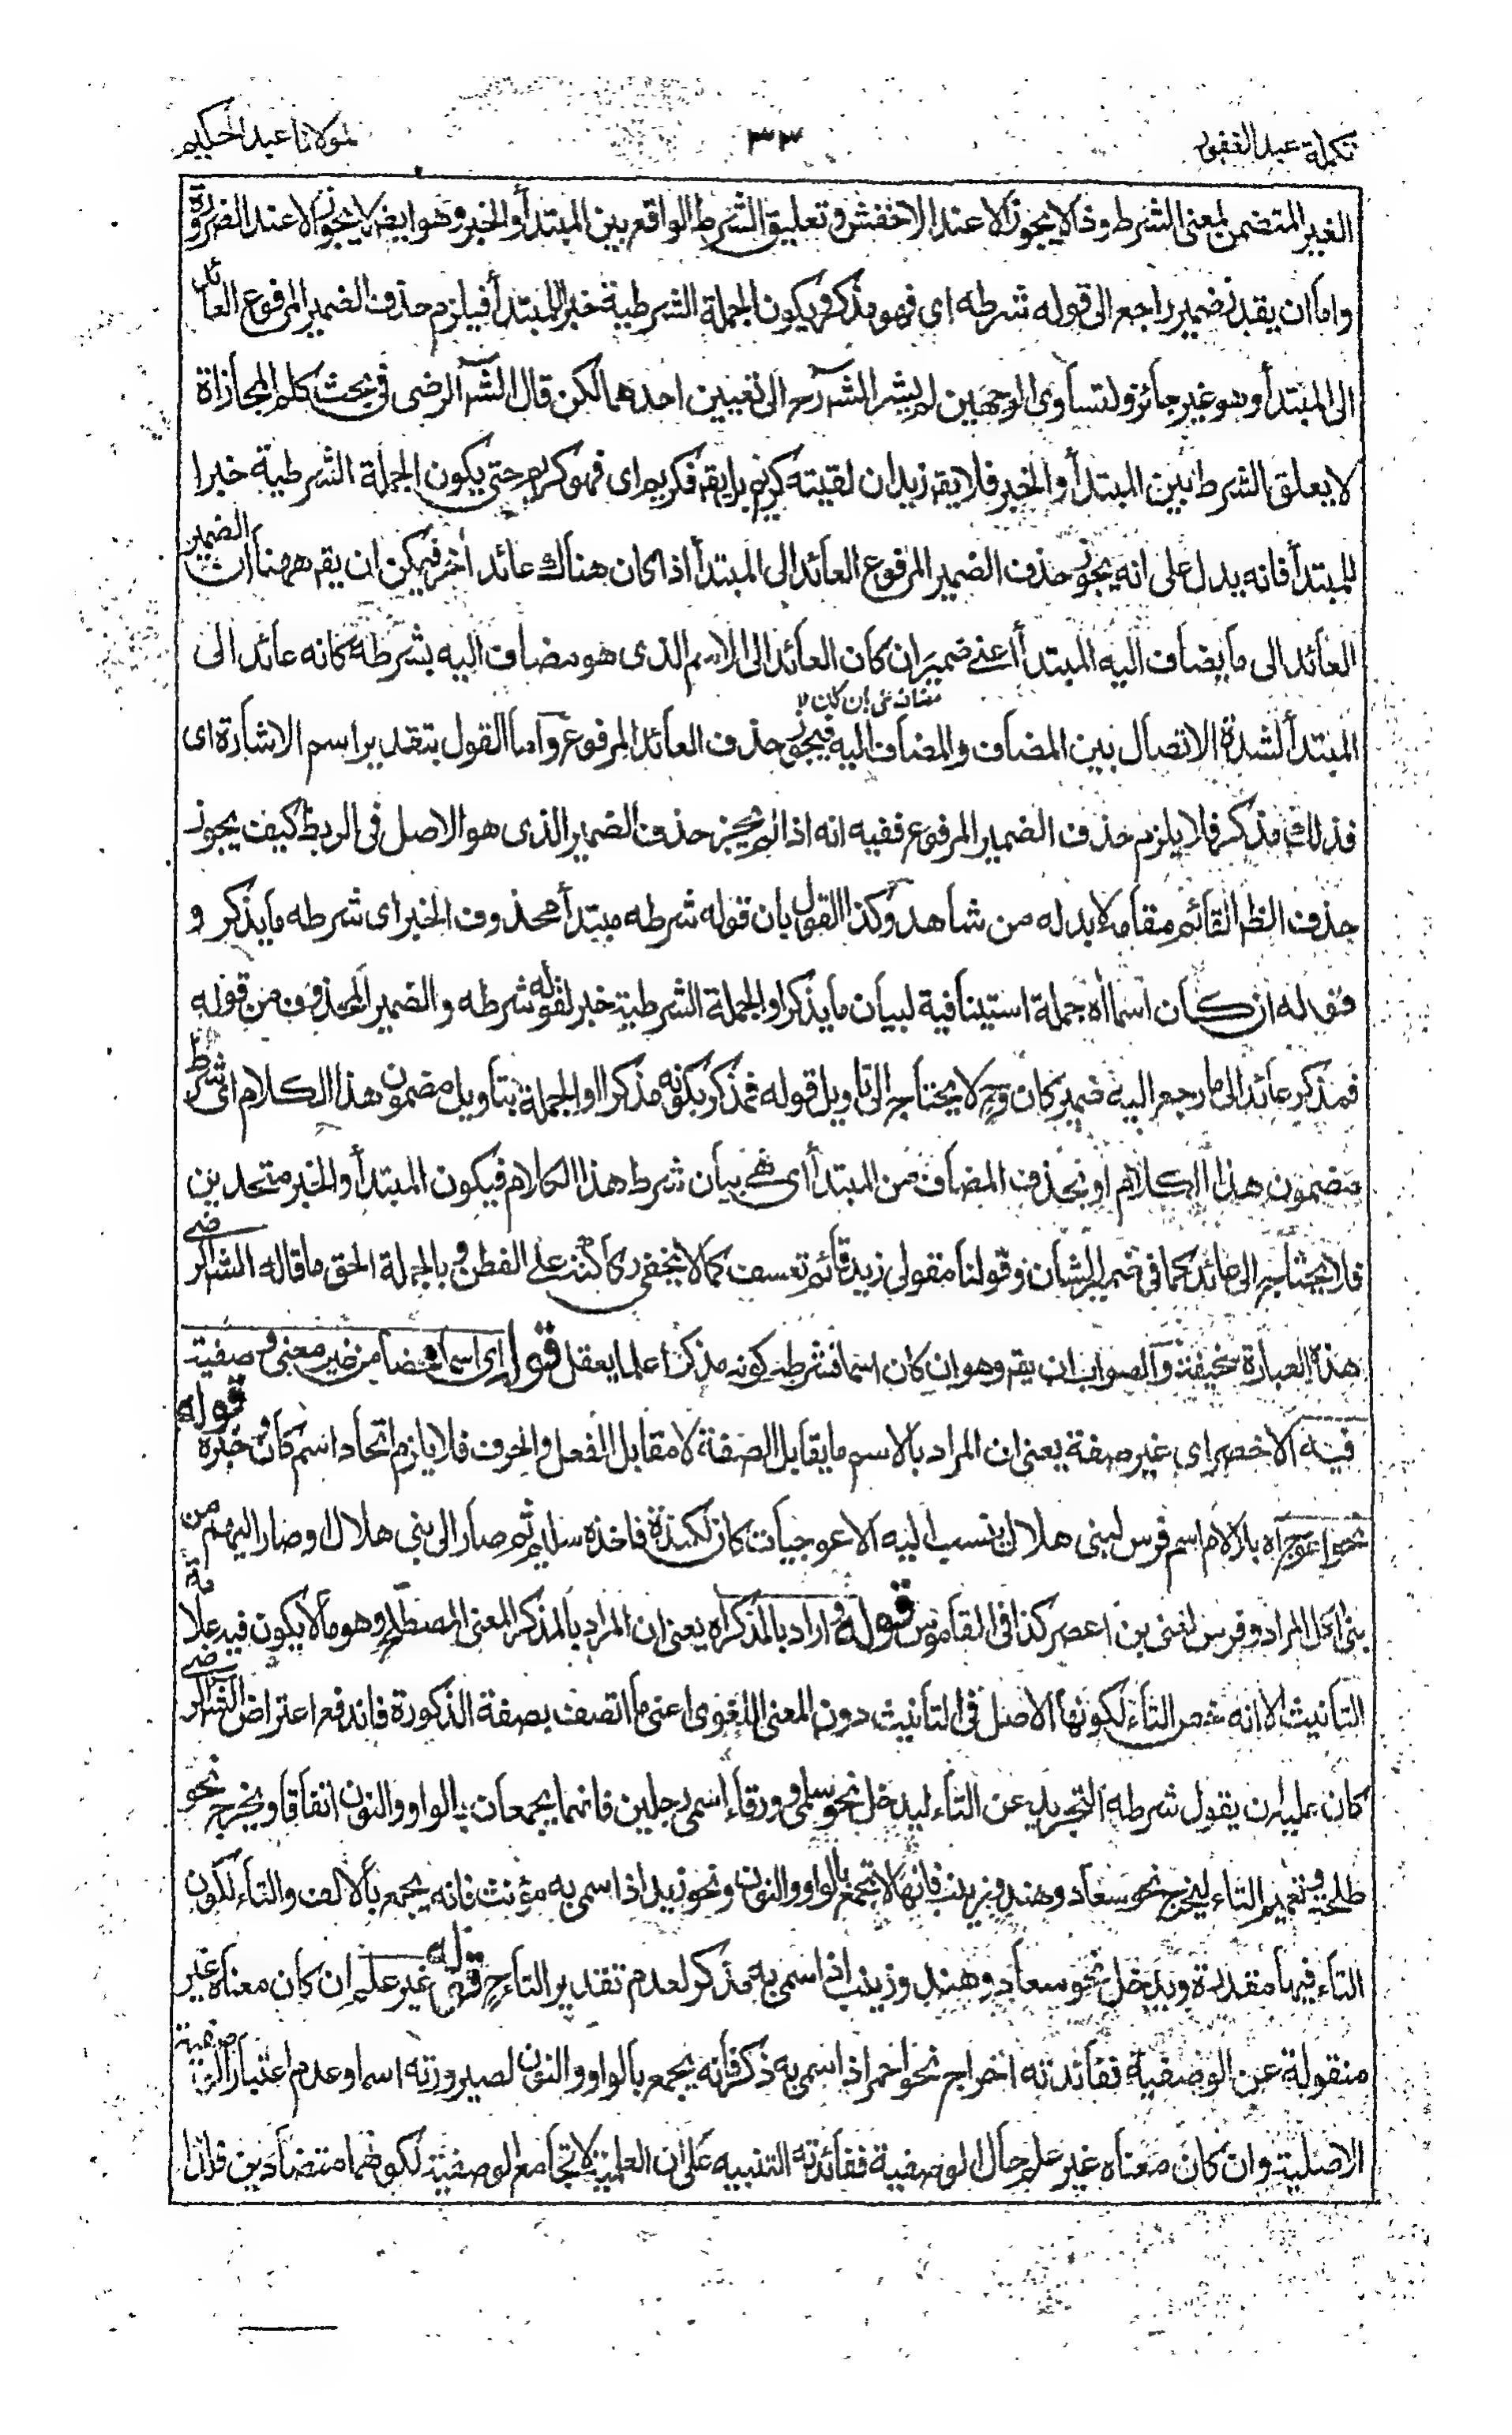 تكملة عبد الغفور
٣٣
لمولانا عبد الحكيم
الغير المتضمن لمعنى الشرط وذا لا يجوز الا عند الاخفش وتعليق الشرط الواقع بين المبتدأ والخبر وهو ايضا لا يجوز الا عند الضرورة
واما ان يقدر ضمير راجع الى قوله شرطه اى فهو مذكر ويكون الجملة الشرطية خبر المبتدأ فيلزم حذف الضمير المرفوع العائد
الى المبتدأ وهو غير جائز ولتساوى الوجهين لم يشر الش رح الى تعيين احدهما لكن قال الش الرضى فى بحث كلم المجازاة
لا يعلق الشرط بين المبتدأ والخبر فلا يقه زيد ان لقيته كريم بل يقه فكريم اى فهو كريم حتى يكون الجملة الشرطية خبرا
للمبتدأ فانه يدل على انه يجوز حذف الضمير المرفوع العائد الى المبتدأ اذا كان هناك عائد اخر فيمكن ان يقه ههنا ان الضمير
العائد الى ما يضاف اليه المبتدأ اعنى ضمير ان كان العائد الى الاسم الذى هو مضاف اليه بشرطه كانه عائد الى
المبتدأ لشدة الاتصال بين المضاف والمضاف اليه فيجوز حذف العائد المرفوع واما القول بتقدير اسم الاشارة اى
فذلك مذكر فلا يلزم حذف الضمير المرفوع ففيه انه اذا لم يجز حذف الضمير الذى هو الاصل فى الربط كيف يجوز
حذف الظ القائم مقامه لا بد له من شاهد وكذا القول بان قوله شرطه مبتدأ محذوف الخبر اى شرطه ما يذكر و
قوله ان كان اسما اه جملة استينافية لبيان ما يذكر او الجملة الشرطية خبر لقوله شرطه والضمير المحذوف من قوله
فمذكر عائد الى ما رجع اليه ضمير كان وح لا يحتاج الى تاويل قوله فمذكر بكونه مذكرا او الجملة بتاويل مضمون هذا الكلام اى شرطه
مضمون هذا الكلام او بحذف المضاف من المبتدأ اى بيان شرط هذا الكلام فيكون المبتدأ والخبر متحدين
فلا يحتاج الى عائد كما فى ضمير الشان وقولنا مقولى زيد قائم تعسف كما لا يخفى على الفطن وبالجملة الحق ما قاله الش الرضى
هذه العبارة سخيفة والصواب ان يقه وهو ان كان اسما فشرطه كونه مذكرا علما يعقل قوله اى اسما محضا من غير معنى وصفية
فيه الاخصر اى غير صفة يعنى ان المراد بالاسم ما يقابل الصفة لا مقابل الفعل والحرف فلا يلزم اتحاد اسم كان وخبره قوله
نحو اعوج اه بلا لام اسم فرس لبنى هلال ينسب اليه الاعوجيات كان لكندة فاخذه سليم ثم صار الى بنى هلال او صار اليهم من
بنى اكل المرار وفرس لغنى بن اعصر كذا فى القاموس قوله واراد بالمذكر اه يعنى ان المراد بالمذكر المعنى المصطلح وهو ما لا يكون فيه علامة
التانيث الا انه خص التاء لكونها الاصل فى التانيث دون المعنى اللغوى اعنى ما اتصف بصفة الذكورة فاندفع اعتراض الش الرضى
كان عليه ان يقول شرطه التجريد عن التاء ليدخل نحو سلمى وورقاء اسمى رجلين فانهما يجمعان بالواو والنون اتفاقا ويخرج نحو
طلحة وتعميم التاء ليخرج نحو سعاد وهند وزينب فانها لا تجمع بالواو والنون ونحو زيد اذا سمى به مؤنث فانه يجمع بالالف والتاء لكون
التاء فيها مقدرة ويدخل نحو سعاد وهند وزينب اذا سمى به مذكر لعدم تقدير التاء ح قوله غير علم ان كان معناه غير
منقولة عن الوصفية ففائدته اخراج نحو احمر اذا سمى به ذكر فانه يجمع بالواو والنون لصيرورته اسما وعدم اعتبار الوصفية
الاصلية وان كان معناه غير علم حال الوصفية ففائدته التنبيه على ان العلمية لا تجامع الوصفية لكونهما متضادين فلذا